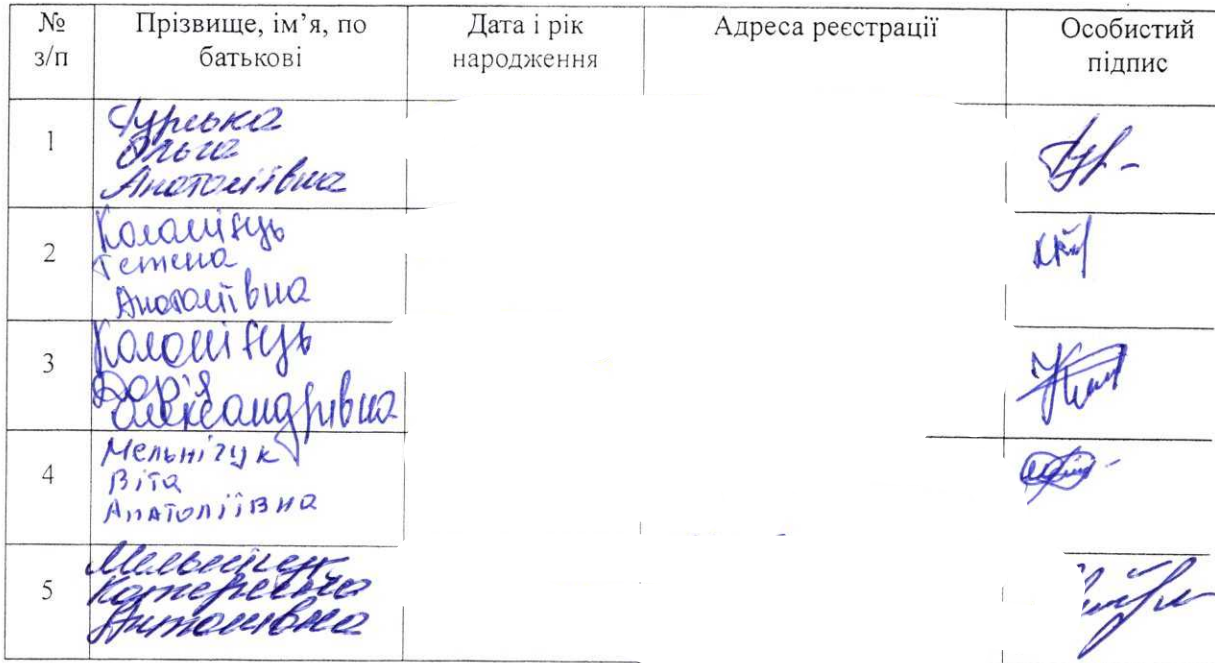 № з/п Прізвище, ім’я, по батькові Дата і рік народження Адреса реєстрації Особистий підпис
1
Гурська
Ольга
Анатоліївна
2
Коломієць
Тетяна
Анатоліївна
3
Коломієць
Дар'я
Олександрівна
4
Мельнічук
Віта
Анатоліївна
5
Мельнічук
Катерина
Антонівна